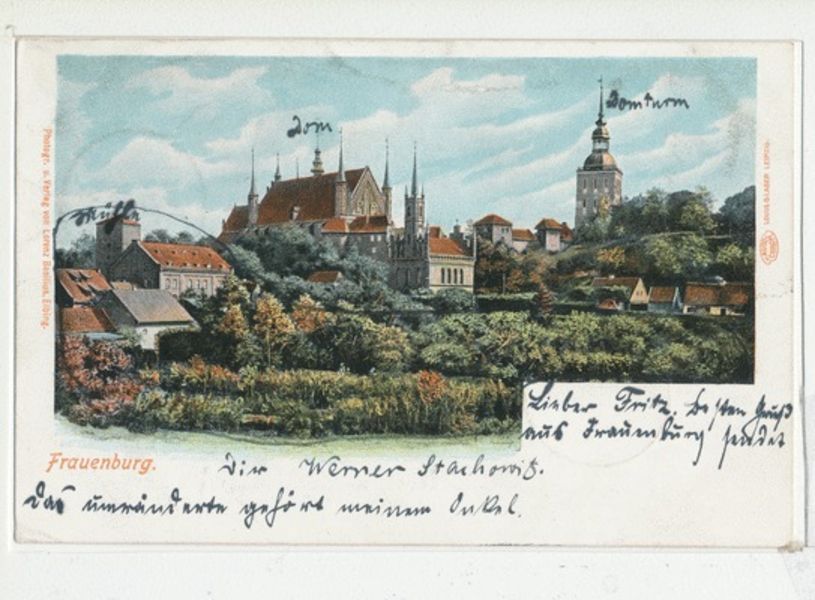 Dom
Domturm
Mühle
Photogr. u. Verlag von Lorenz Basilius, Elbing.
LOUIS GLASER LEIPZIG.
Lieber Fritz. besten Gruß
aus Frauenburg sendet
Frauenburg.
Dir Werner Stachowitz.
Das umränderte gehört meinem Onkel.